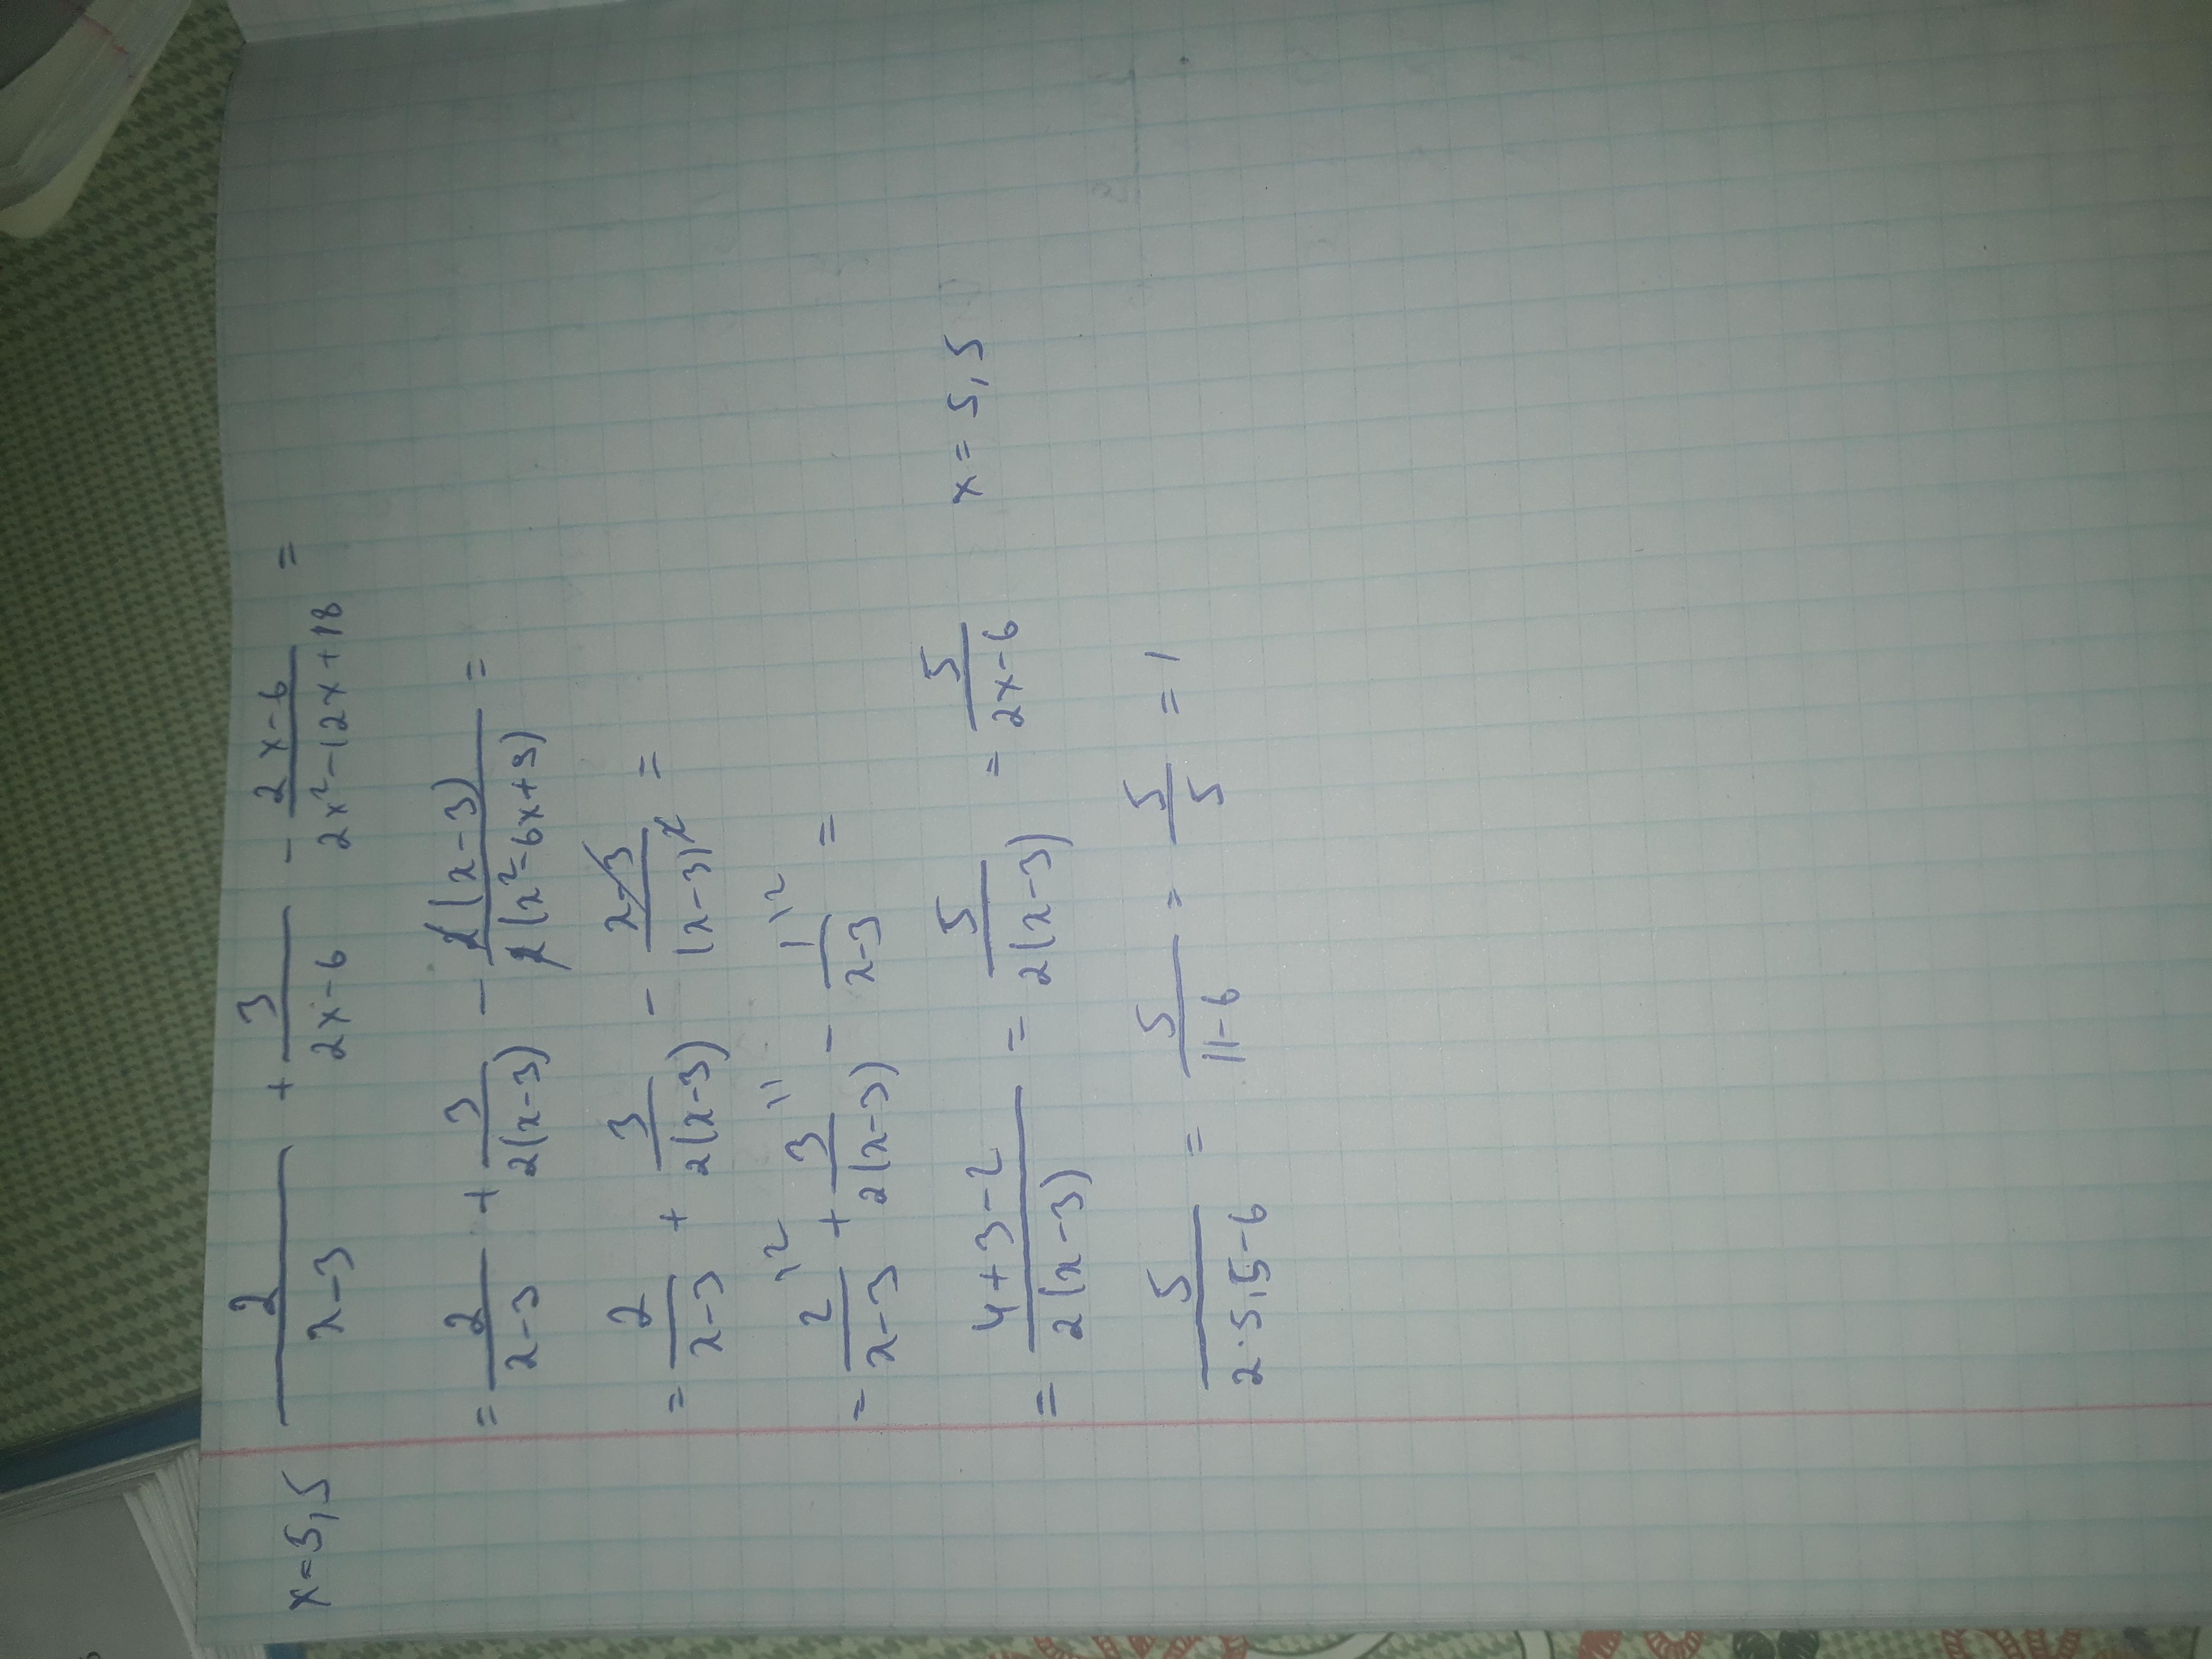 x=5,5 2/(x-3) + 3/(2x-6) - (2x-6)/(2x²-12x+18) =
= 2/(x-3) + 3/(2(x-3)) - 2(x-3)/(2(x²-6x+9)) =
= 2/(x-3) + 3/(2(x-3)) - (x-3)/(x-3)² =
= 2/(x-3) \2 + 3/(2(x-3)) \1 - 1/(x-3) \2 =
= (4+3-2)/(2(x-3)) = 5/(2(x-3)) = 5/(2x-6) x=5,5
5/(2·5,5-6) = 5/(11-6) = 5/5 = 1